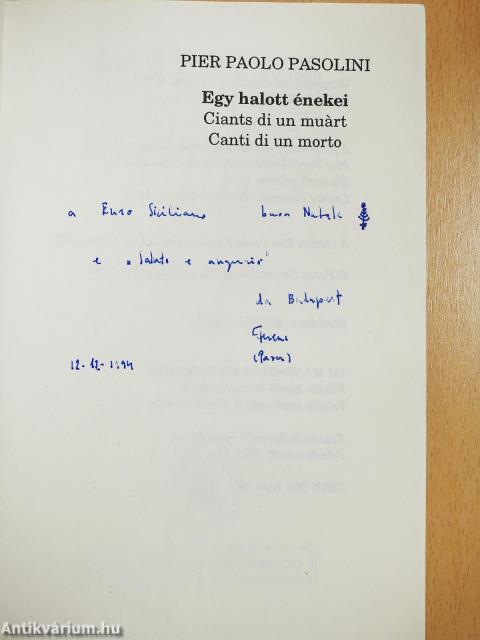 PIER PAOLO PASOLINI
Egy halott énekei
Ciants di un muàrt
Canti di un morto
a Enzo Siciliano buon Natale
e „Saluto e augurio"
da Budapest
Ferenc
(Parcz)
12-12-1994
Antikvárium.hu